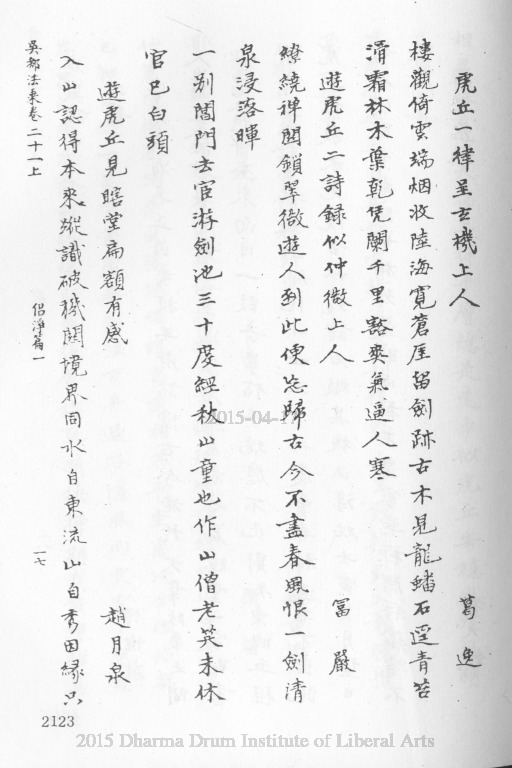 虎丘一律呈玄機上人　葛逸
樓觀倚雲端烟收陸海寬蒼厓留劍跡古木見龍蟠石逕青苔
滑霜林木葉乾凭闌千里豁爽氣逼人寒
遊虎丘二詩錄似仲微上人　冨嚴
繚繞禅関鎖翠微遊人到此便忘歸古今不盡春風恨一劍清
泉浸落暉
一别閶門去宦游劍池三十度經秋山童也作山僧老笑未休
官已白頭
遊虎丘見瞎堂扁額有感　趙月泉
入山認得本來蹤識破機関境界同水自東流山自秀因緣只
吳都法乘卷二十一上　侶淨篇一　一七
2123
2015-04-17
2015 Dharma Drum Institute of Liberal Arts